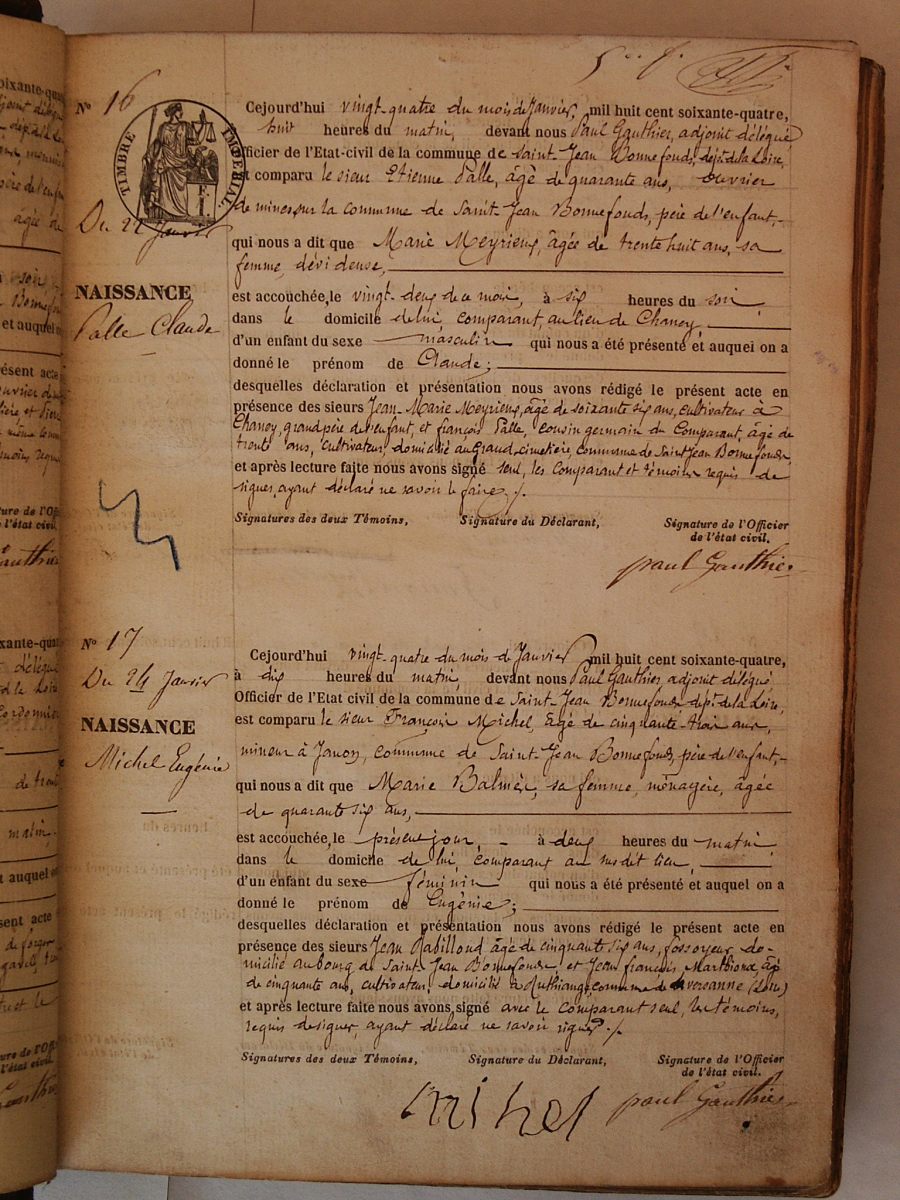 Nº 16
TIMBRE IMPÉRIAL
Du 22 Janvier
NAISSANCE
Palle Claude
Cejourd'hui vingt-quatre du mois de Janvier, mil huit cent soixante-quatre,
huit heures du matin, devant nous Paul Gauthier, adjoint délégué
Officier de l'Etat-civil de la commune de Saint-Jean Bonnefonds, dépt de la Loire,
est comparu le sieur Etienne Palle, âgé de quarante ans, ouvrier
de mines, sur la commune de Saint-Jean Bonnefonds, père de l'enfant,
qui nous a dit que Marie Meyrieux, âgée de trente huit ans, sa
femme, dévideuse,
est accouchée, le vingt-deux de ce mois, à six heures du soir,
dans le domicile de lui, comparant, au lieu de Chaney,
d'un enfant du sexe masculin qui nous a été présenté et auquel on a
donné le prénom de Claude;
desquelles déclaration et présentation nous avons rédigé le présent acte en
présence des sieurs Jean-Marie Meyrieux, âgé de soixante six ans, cultivateur à
Chaney, grand père de l'enfant, et françois Palle, cousin germain du Comparant, âgé de
trente ans, cultivateur, domicilié au Grand-cimetière, commune de Saint Jean Bonnefonds,
et après lecture faite nous avons signé seul, les Comparant et témoins requis de
signer, ayant déclaré ne savoir le faire ./.
Signatures des deux Témoins, Signature du Déclarant, Signature de l'Officier
de l'état civil.
paul Gauthier
Nº 17
Du 24 Janvier
NAISSANCE
Michel Eugénie
Cejourd'hui vingt-quatre du mois de Janvier mil huit cent soixante-quatre,
à dix heures du matin, devant nous Paul Gauthier adjoint délégué
Officier de l'Etat civil de la commune de Saint-Jean Bonnefonds dépt de la Loire,
est comparu le sieur François Michel, âgé de cinquante-trois ans,
mineur à Janon, commune de Saint-Jean Bonnefonds, père de l'enfant,
qui nous a dit que Marie Balmier, sa femme, ménagère, âgée
de quarante six ans,
est accouchée, le présent jour, à deux heures du matin
dans le domicile de lui, comparant au susdit lieu,
d'un enfant du sexe féminin qui nous a été présenté et auquel on a
donné le prénom de Eugénie;
desquelles déclaration et présentation nous avons rédigé le présent acte en
présence des sieurs Jean Rabilloud âgé de cinquante six ans, fossoyeur do-
micilié au bourg de Saint-Jean Bonnefonds, et Jean françois âgé
de cinquante ans, cultivateur, domicilié à commune de (Loire)
et après lecture faite nous avons signé avec le Comparant seul, les témoins,
requis de signer, ayant déclaré ne savoir signer ./.
Signatures des deux Témoins, Signature du Déclarant, Signature de l'Officier
de l'état civil.
michel paul Gauthier